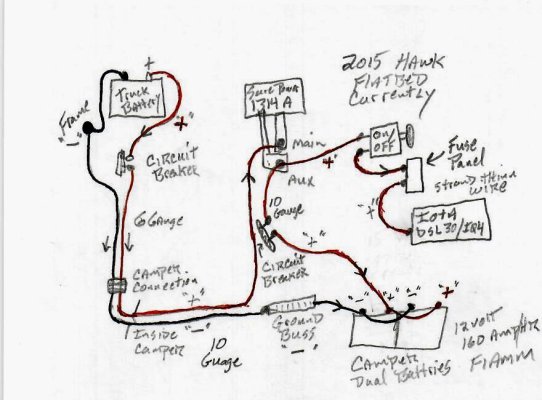 2015 HAWK
FLATBED
Currently
+
Truck
Battery
Sure Power
1314 A
Frame
"-"
"+"
Main
ON/
OFF
Fuse
Panel
CIRCUIT
Breaker
Aux
"+"
wire
10
Gauge
"+"
IOTA
DSL 30/IQ4
6 Gauge
CIRCUIT
Breaker
"+"
CAMPER
Connection
"+"
"-"
"-"
"+"
"+"
Inside
Camper
"-"
10
Guage
Ground
Buss
"-"
12 volt
160 AmpHr
FIAMM
CAMPER
Dual Battries